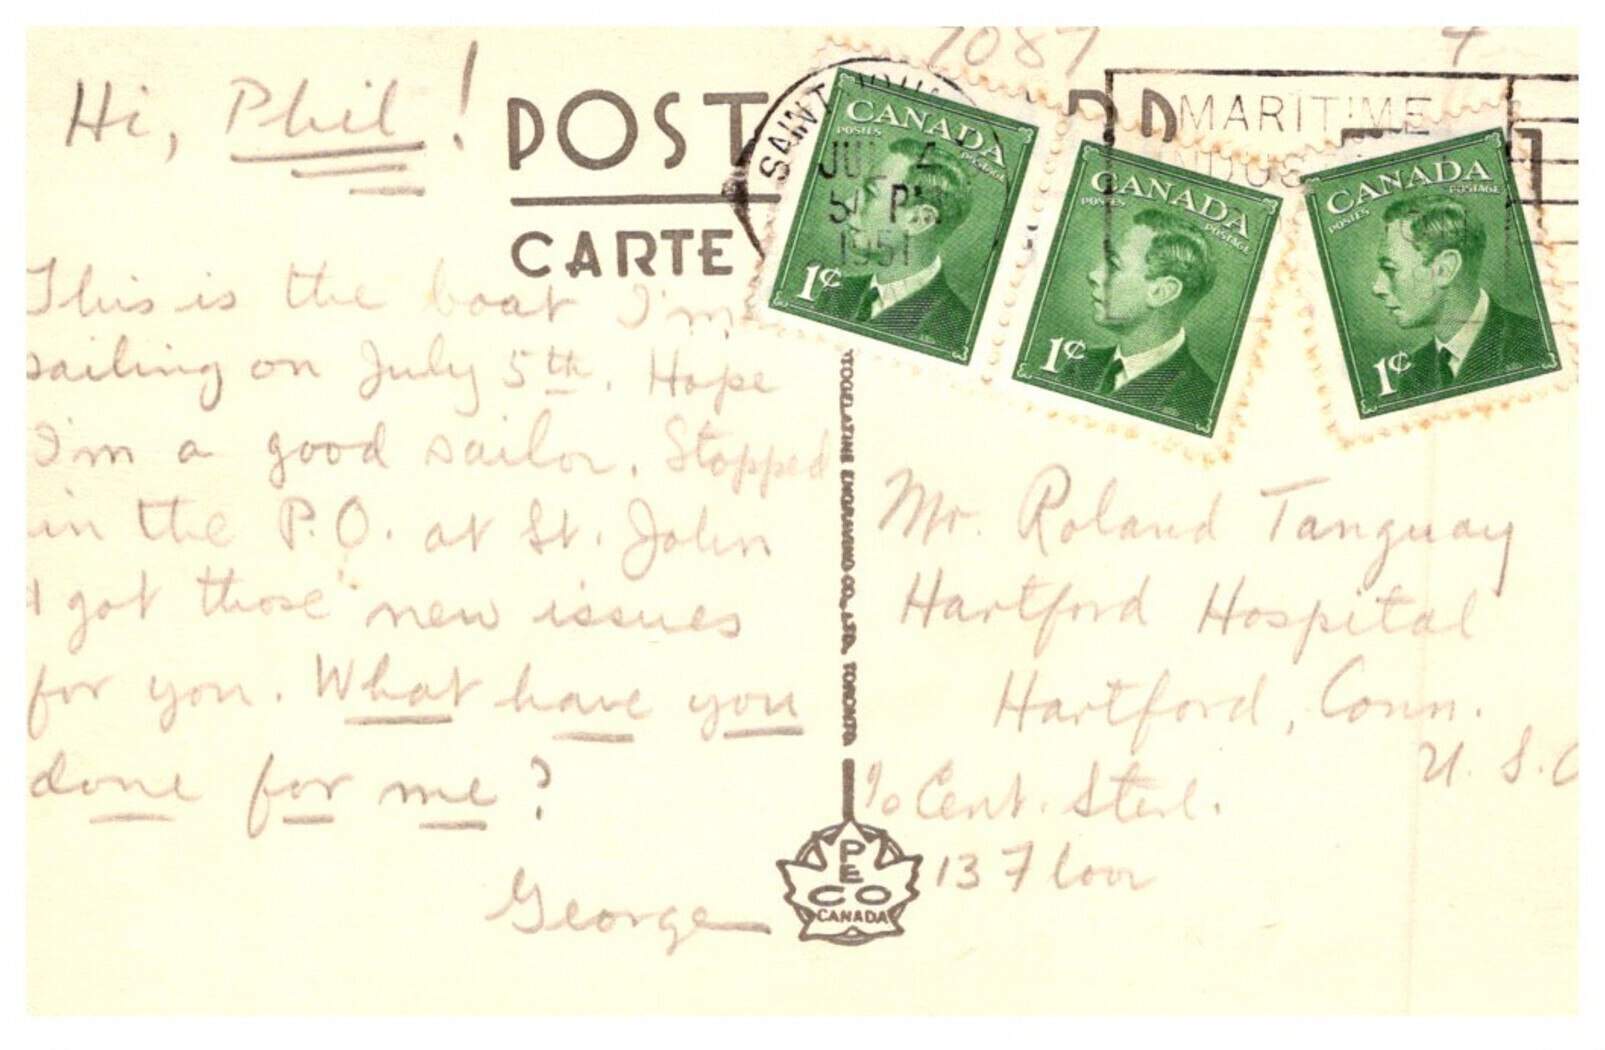 2087
Hi, Phil!
POST
CARTE
SAINT
JUL 4
5 PM
1951
MARITIME
CANADA
POSTES POSTAGE
1¢
CANADA
POSTES POSTAGE
1¢
CANADA
POSTES POSTAGE
1¢
This is the boat I'm
sailing on July 5th. Hope
I'm a good sailor. Stopped
in the P.O. at St. John
& got those new issues
for you. What have you
done for me?
George
PHOTOGELATINE ENGRAVING CO., LTD. TORONTO
Mr. Roland Tanguay
Hartford Hospital
Hartford, Conn.
U. S. A
c/o Cent. Steril.
13 Floor
PECO
CANADA